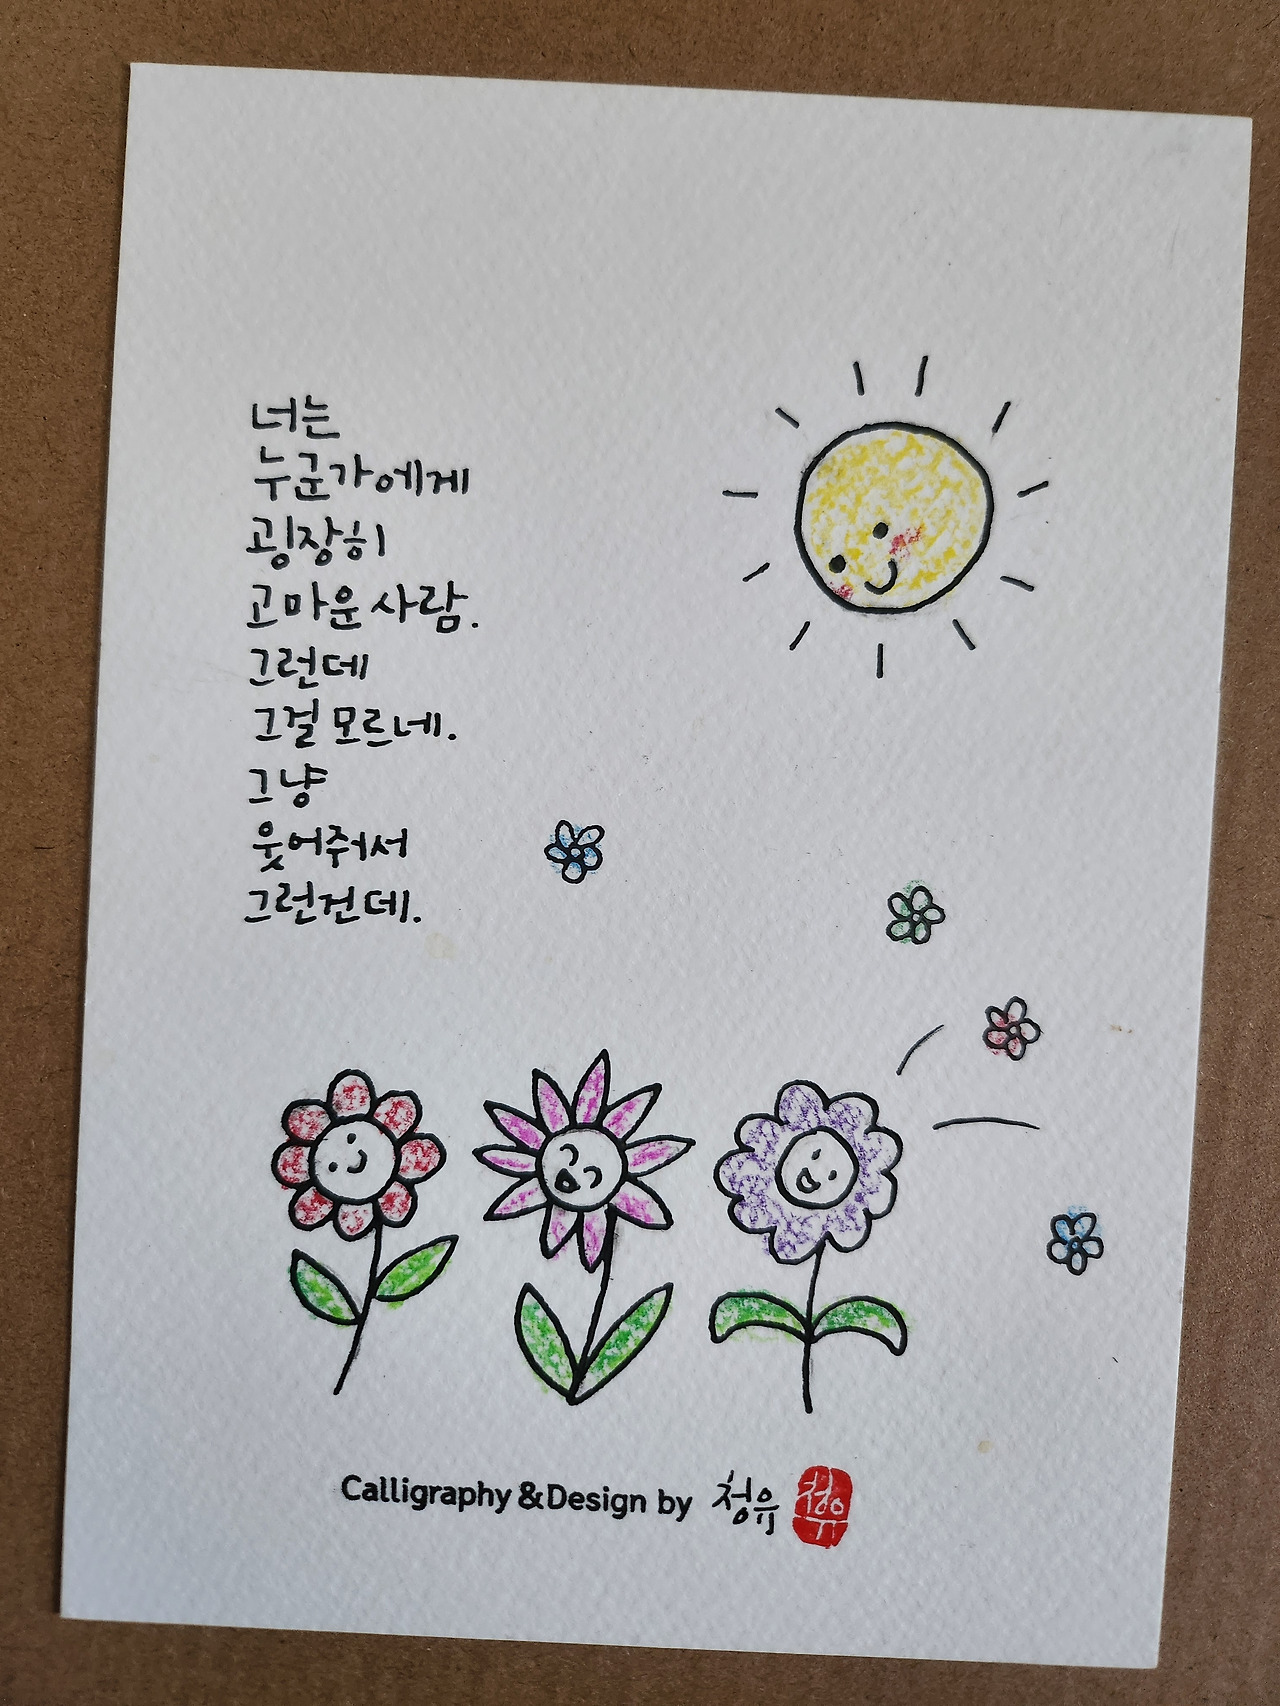 너는
누군가에게
굉장히
고마운 사람.
그런데
그걸 모르네.
그냥
웃어줘서
그런건데.
Calligraphy & Design by 청유 청유